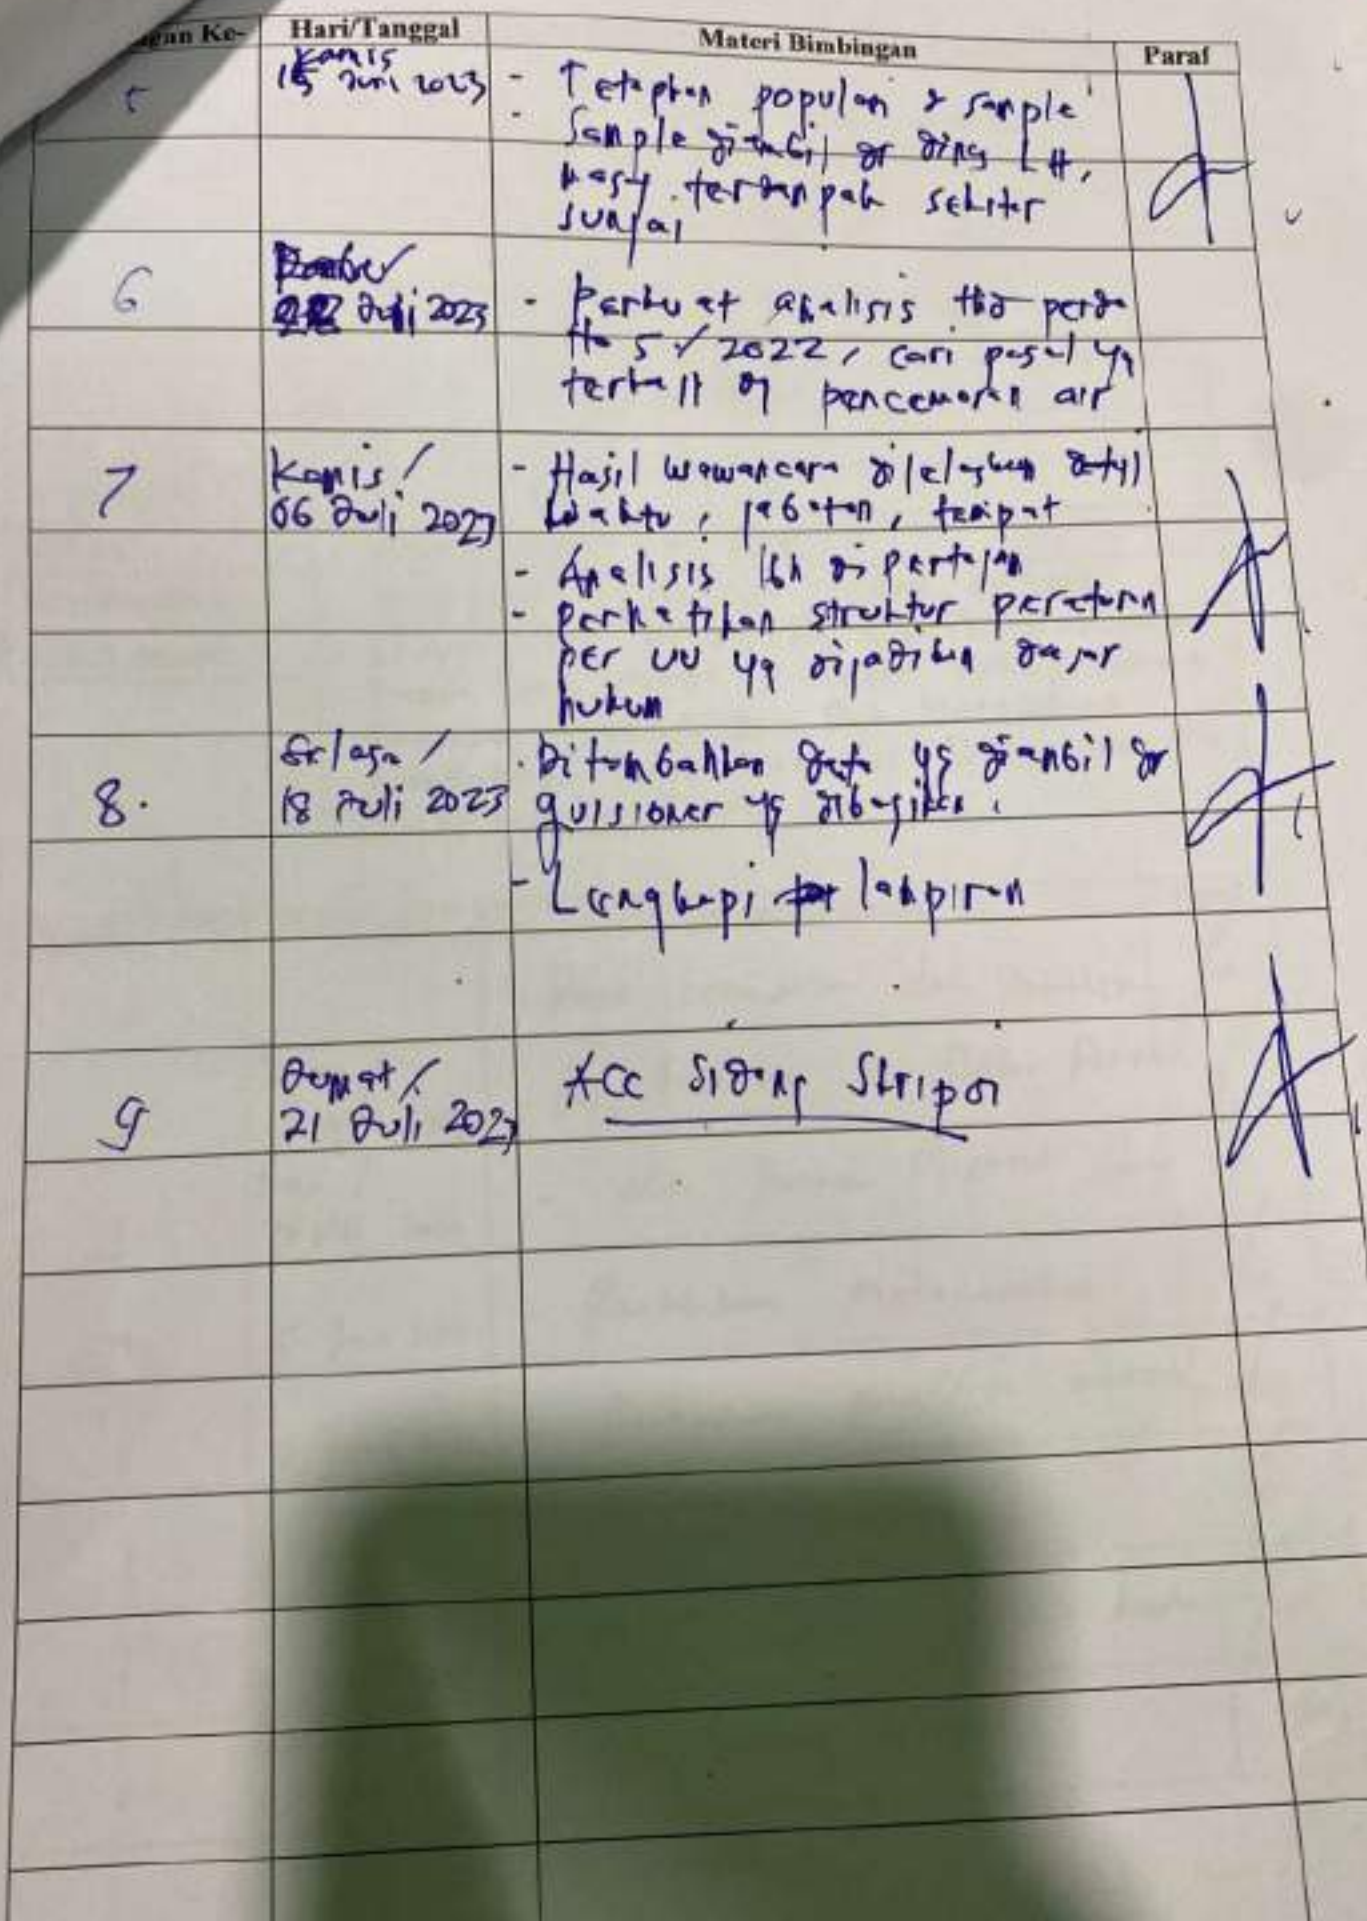 ngan Ke- Hari/Tanggal Materi Bimbingan Paraf
5 Kamis
15 Juni 2023 - Tetapkan populasi & sample
- Sample diambil dr dinas LH,
masy. terdampak sekitar
sungai
6
Juli 2023 - Perkuat analisis thd perda
No 5 / 2022, cari pasal yg
terkait dg pencemaran air
7 Kamis / - Hasil wawancara dijelaskan detail
06 Juli 2023 waktu, jabatan, tempat
- Analisis lbh dipertajam
- Perhatikan struktur peraturan
per UU yg dijadikan dasar
hukum
8. Selasa / - Ditambahkan data yg diambil dr
18 Juli 2023 quisioner yg dibagikan.
- Lengkapi lampiran
9 Jumat /
21 Juli 2023 ACC Sidang Skripsi